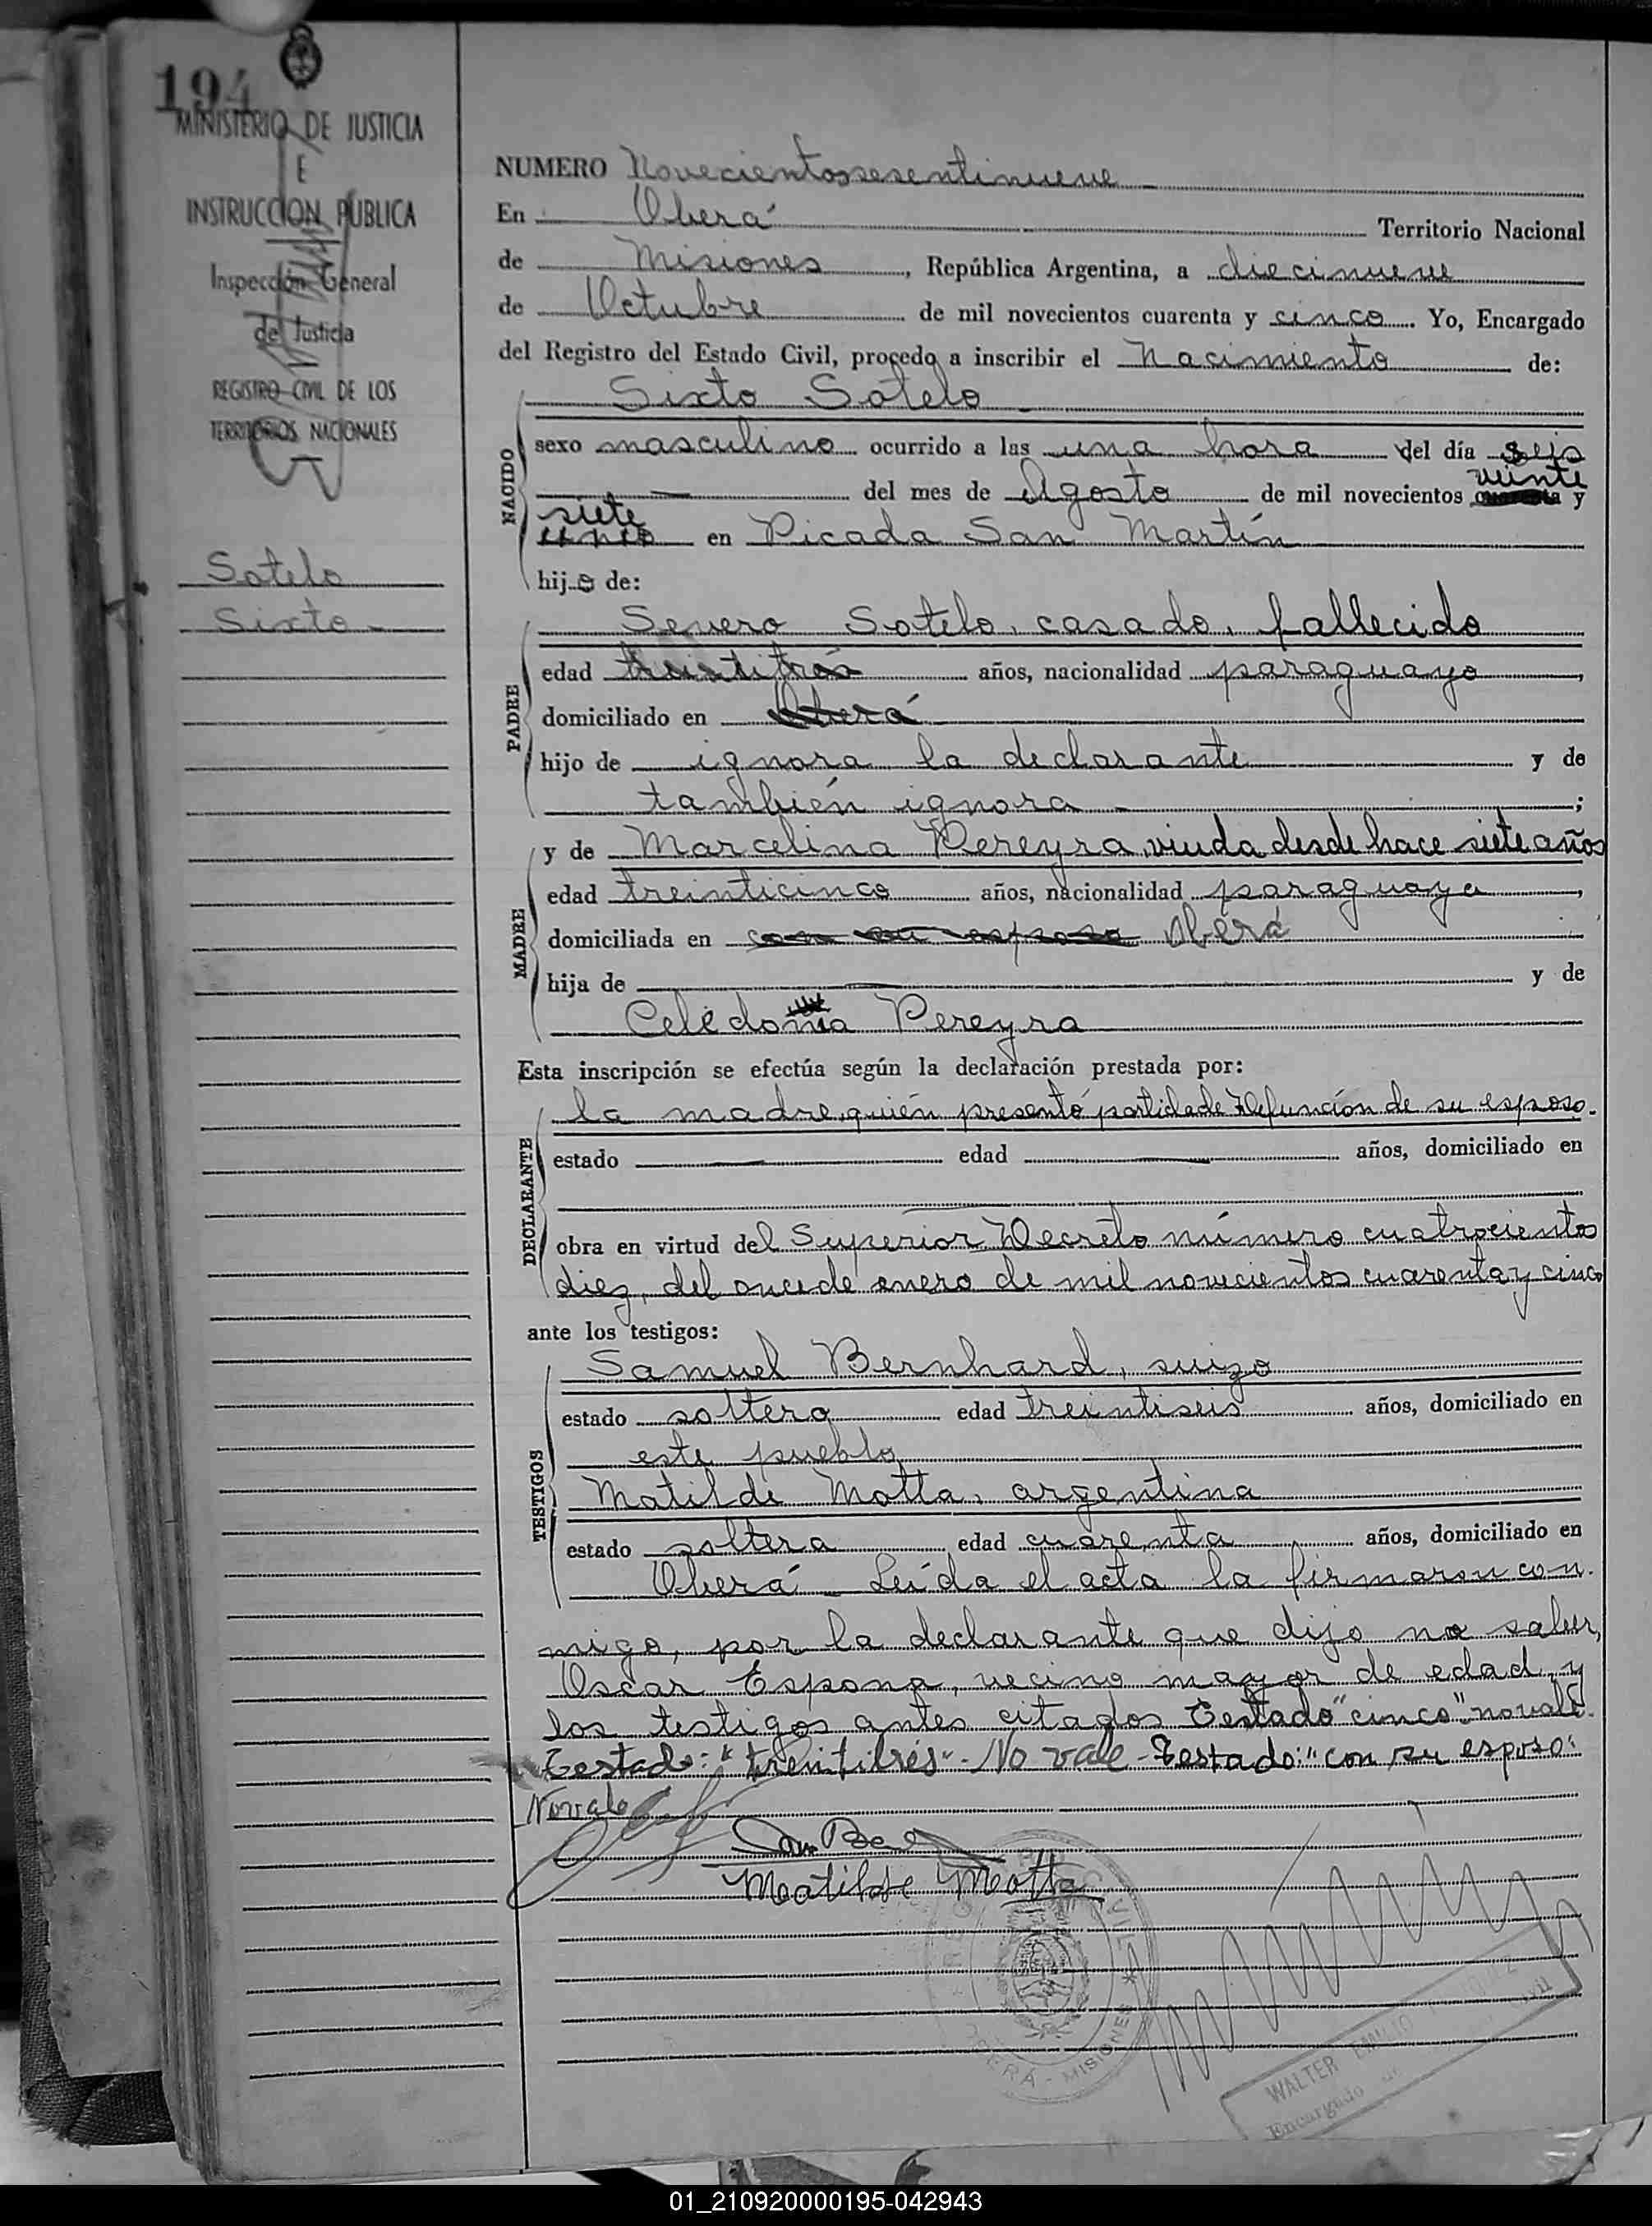 194
MINISTERIO DE JUSTICIA
E
INSTRUCCION PUBLICA
Inspección General
de Justicia
REGISTRO CIVIL DE LOS
TERRITORIOS NACIONALES
Sotelo
Sixto -
NUMERO Novecientossesentinueve
En Oberá Territorio Nacional
de Misiones, República Argentina, a diecinueve
de Octubre de mil novecientos cuarenta y cinco. Yo, Encargado
del Registro del Estado Civil, procedo a inscribir el Nacimiento de:
Sixto Sotelo
NACIDO
sexo masculino ocurrido a las una hora del día seis
veinte
del mes de Agosto de mil novecientos cuarenta y
siete
cinco en Picada San Martín
hijo de:
PADRE
Severo Sotelo, casado, fallecido
edad treintitrés años, nacionalidad paraguayo,
domiciliado en Oberá
hijo de ignora la declarante y de
también ignora ;
MADRE
y de Marcelina Pereyra, viuda desde hace siete años
edad treinticinco años, nacionalidad paraguaya,
domiciliada en con su esposo Oberá
hija de y de
Celedonia Pereyra
Esta inscripción se efectúa según la declaración prestada por:
DECLARANTE
la madre, quién presentó partida de defunción de su esposo.
estado edad años, domiciliado en
obra en virtud del Superior Decreto número cuatrocientos
diez, del once de enero de mil novecientos cuarenta y cinco
ante los testigos:
TESTIGOS
Samuel Bernhard, suizo
estado soltero edad treintiseis años, domiciliado en
este pueblo
Matilde Motta, argentina
estado soltera edad cuarenta años, domiciliado en
Oberá - Leída el acta la firmaron con-
migo, por la declarante que dijo no saber,
Oscar Espona, vecino mayor de edad, y
los testigos antes citados Testado "cinco" no vale.
Testado: "treintitrés". No vale - Testado: "con su esposo"
No vale
Matilde Motta
OBERÁ - MISIONES
WALTER EMILIO
Encargado
01_210920000195-042943